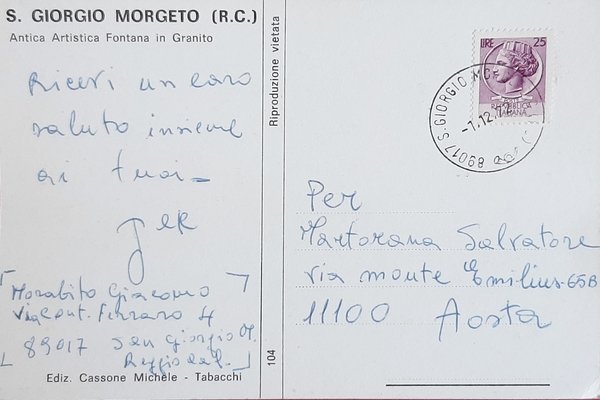 S. GIORGIO MORGETO (R.C.)
Antica Artistica Fontana in Granito
Ricevi un caro
saluto insieme
ai tuoi -
Morabito Giacomo
Via Cont. Ferraro 4
89017 San Giorgio M.
Reggio Cal.
Ediz. Cassone Michele - Tabacchi
Riproduzione vietata
104
LIRE 25
REPUBBLICA
ITALIANA
89017 S. GIORGIO MO
-1.12.72
Per
Martorana Salvatore
via monte Emilius-65B
11100 Aosta